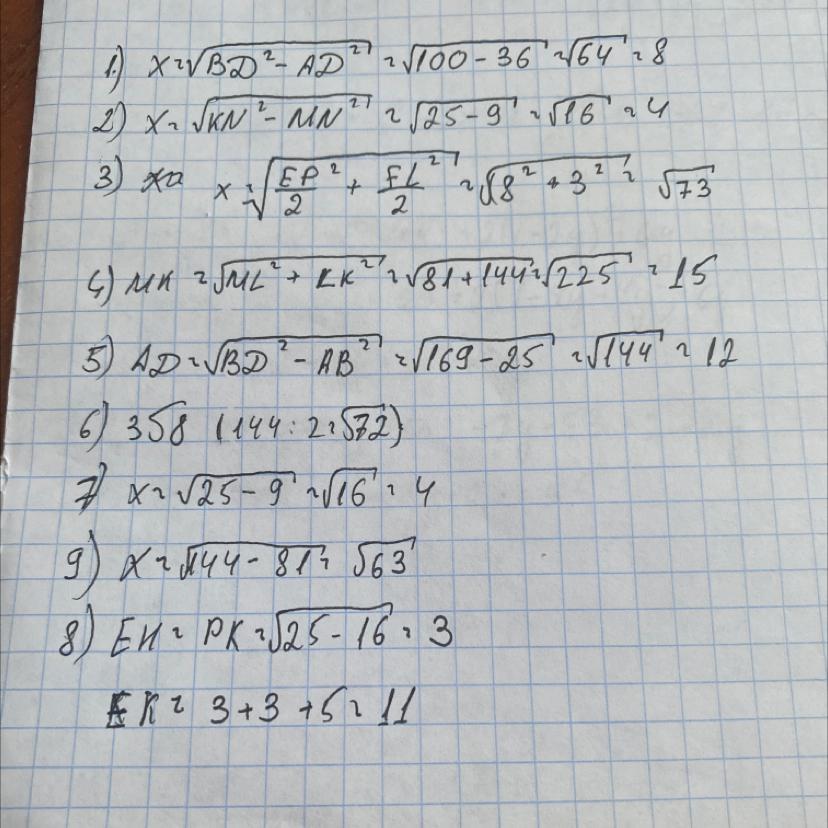 1.) x = √(BD² - AD²) = √(100 - 36) = √64 = 8
2) x = √(KN² - MN²) = √(25 - 9) = √16 = 4
3) x = √(EP/2² + FL/2²) = √(8² + 3²) = √73
4) MK = √(ML² + LK²) = √(81 + 144) = √225 = 15
5) AD = √(BD² - AB²) = √(169 - 25) = √144 = 12
6) 3√8 (144 : 2 = √72)
7) x = √(25 - 9) = √16 = 4
9) x = √(144 - 81) = √63
8) EH = PK = √(25 - 16) = 3
EK = 3 + 3 + 5 = 11